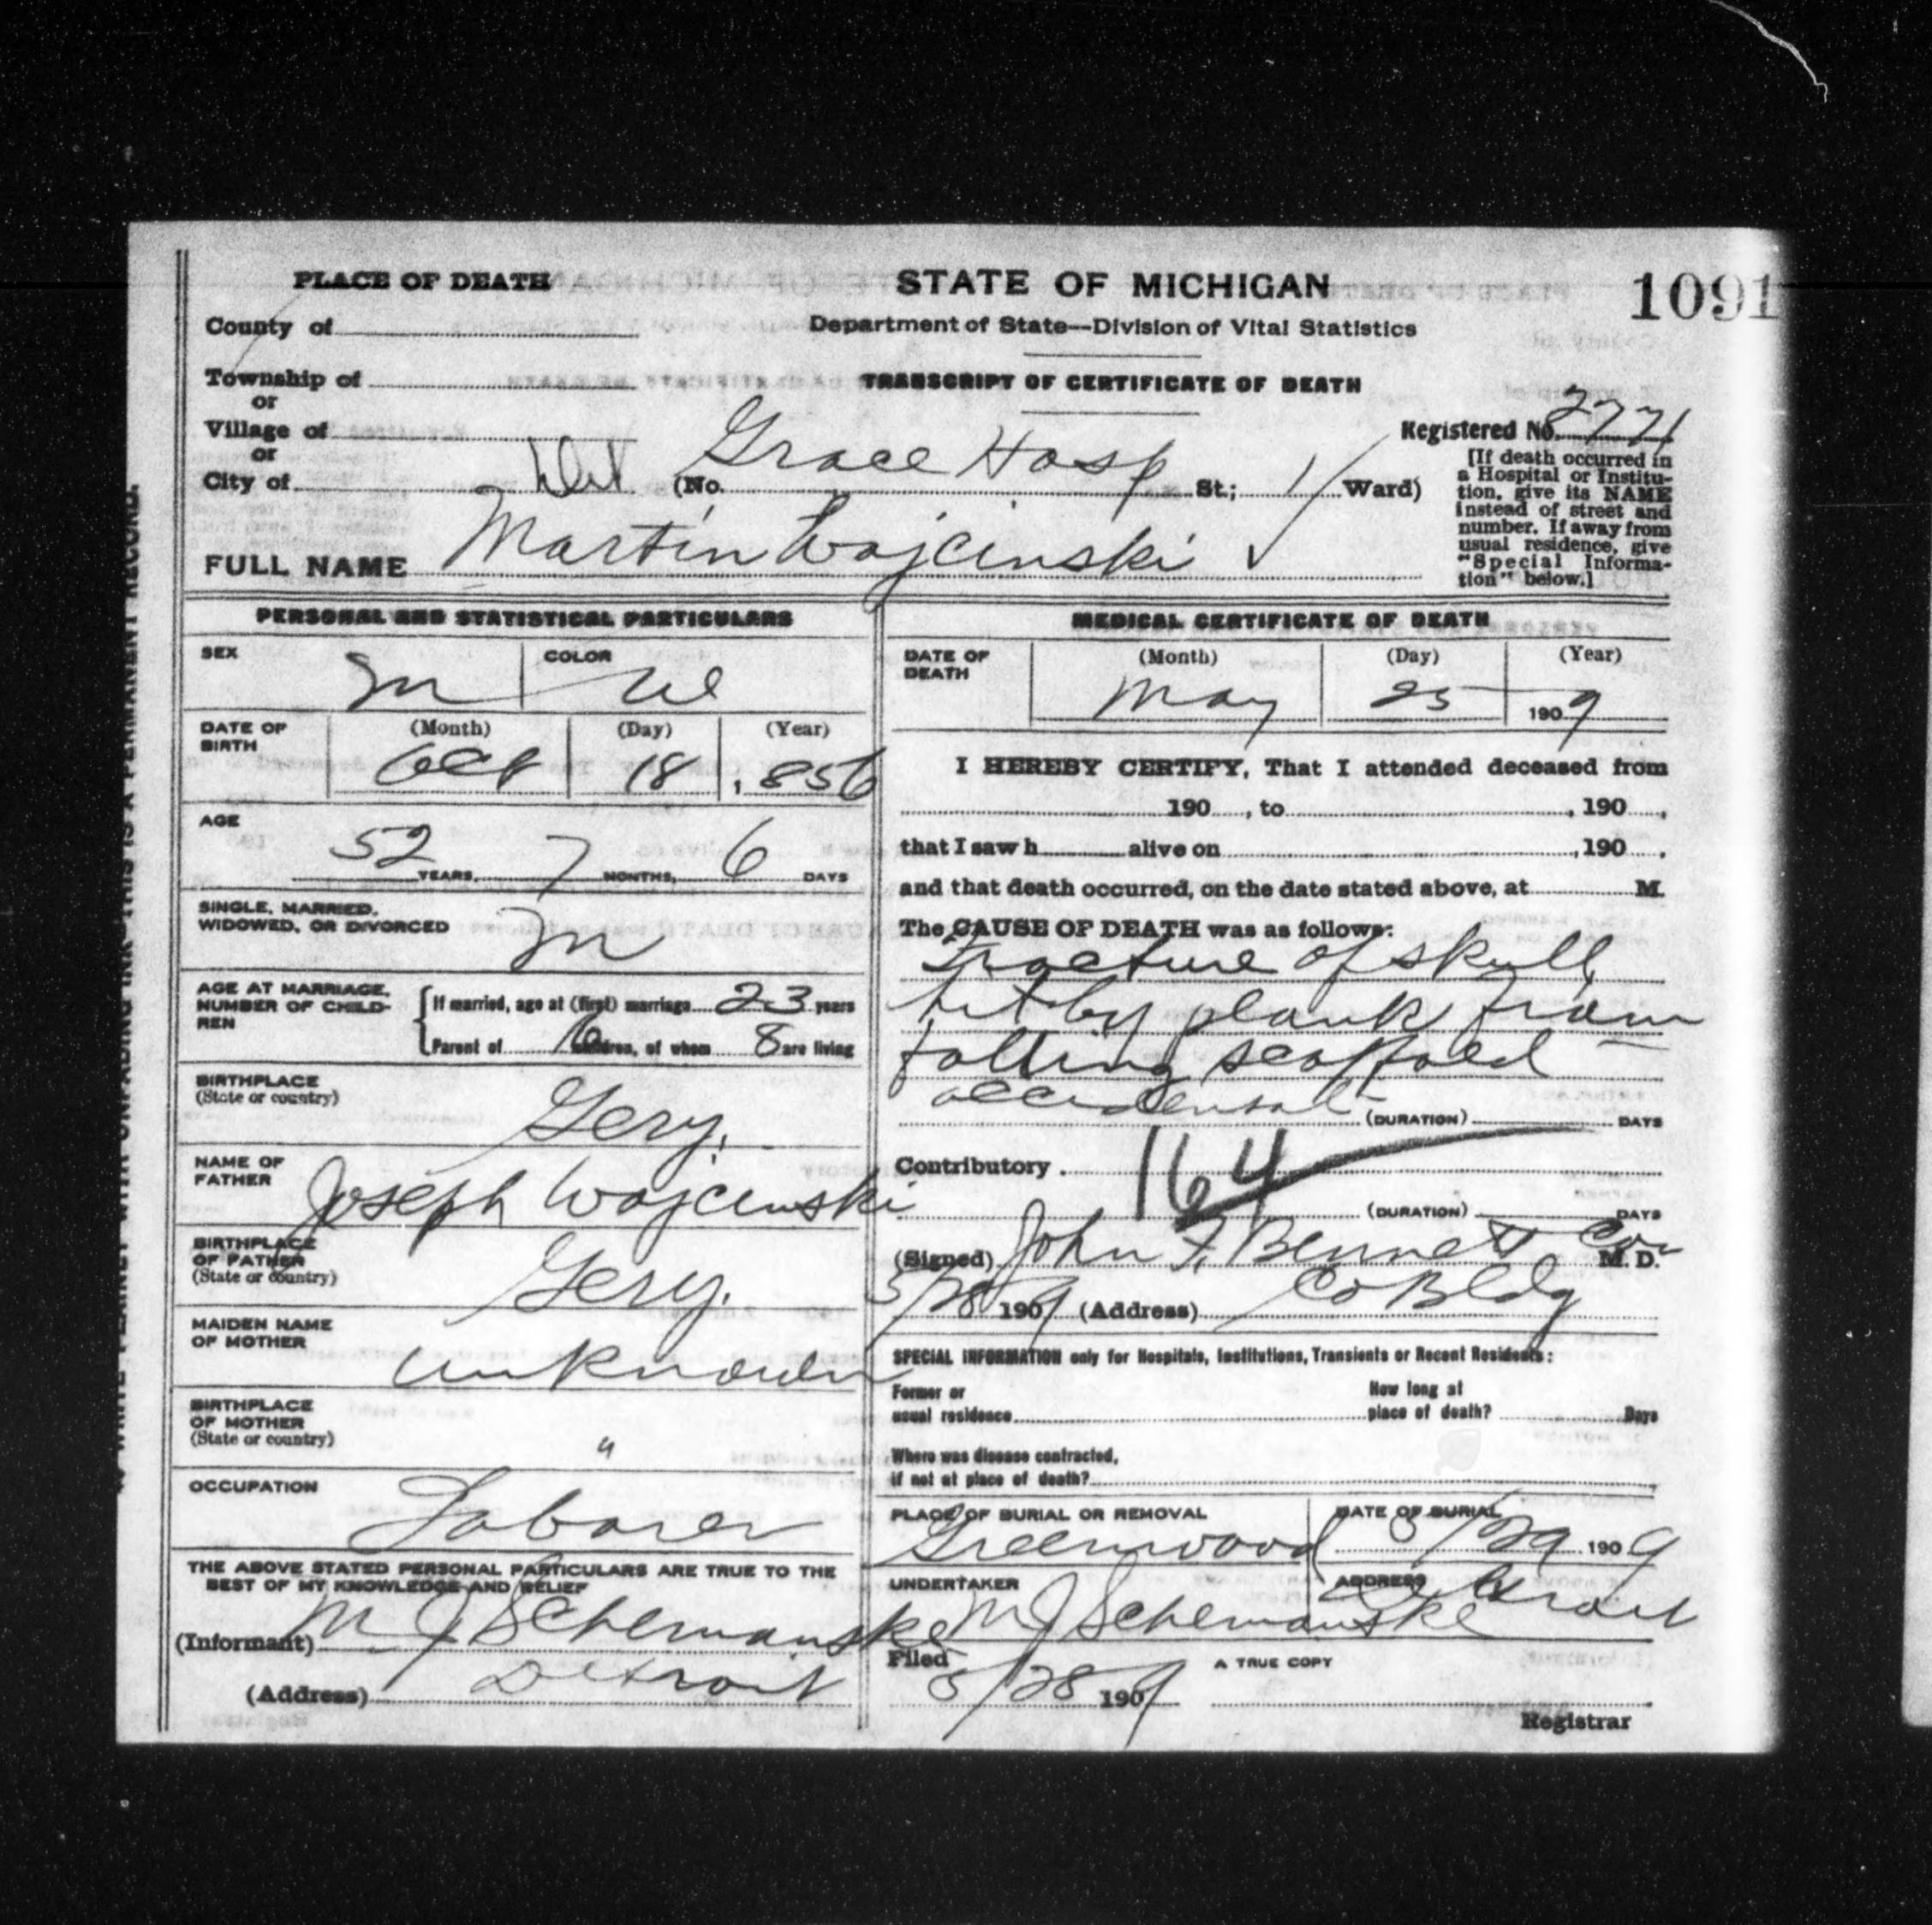 PLACE OF DEATH
STATE OF MICHIGAN
1091
County of
Department of State—Division of Vital Statistics
Township of
TRANSCRIPT OF CERTIFICATE OF DEATH
or
Village of
Registered No. 2771
or
City of Det (No. Grace Hosp St.; 1 Ward)
[If death occurred in
a Hospital or Institu-
tion, give its NAME
instead of street and
number. If away from
usual residence, give
"Special Informa-
tion" below.]
FULL NAME Martin Wojcinski
PERSONAL AND STATISTICAL PARTICULARS
SEX M
COLOR W
DATE OF BIRTH
(Month) (Day) (Year)
Oct 18 , 856
AGE
52 YEARS, 7 MONTHS, 6 DAYS
SINGLE, MARRIED,
WIDOWED, OR DIVORCED M
AGE AT MARRIAGE,
NUMBER OF CHILD-
REN
If married, age at (first) marriage 23 years
Parent of children, of whom 8 are living
BIRTHPLACE
(State or country)
Gery.
NAME OF
FATHER
Joseph Wojcinski
BIRTHPLACE
OF FATHER
(State or country)
Gery.
MAIDEN NAME
OF MOTHER
unknown
BIRTHPLACE
OF MOTHER
(State or country)
"
OCCUPATION
Laborer
THE ABOVE STATED PERSONAL PARTICULARS ARE TRUE TO THE
BEST OF MY KNOWLEDGE AND BELIEF
(Informant) M J Schemanske
(Address) Detroit
MEDICAL CERTIFICATE OF DEATH
DATE OF
DEATH
(Month) (Day) (Year)
May 25 1909
I HEREBY CERTIFY, That I attended deceased from
190 , to , 190 ,
that I saw h alive on , 190 ,
and that death occurred, on the date stated above, at M.
The CAUSE OF DEATH was as follows:
Fracture of skull
hit by plank from
falling scaffold
accidental (DURATION) DAYS
Contributory 164
(DURATION) DAYS
(Signed) John F. Bennett Cor M. D.
5/28 1909 (Address) Co Bldg
SPECIAL INFORMATION only for Hospitals, Institutions, Transients or Recent Residents:
Former or
usual residence
How long at
place of death? Days
Where was disease contracted,
if not at place of death?
PLACE OF BURIAL OR REMOVAL
Greenwood
DATE OF BURIAL
5/29 1909
UNDERTAKER
M J Schemanske
ADDRESS
Detroit
Filed
5/28 1909
A TRUE COPY
Registrar